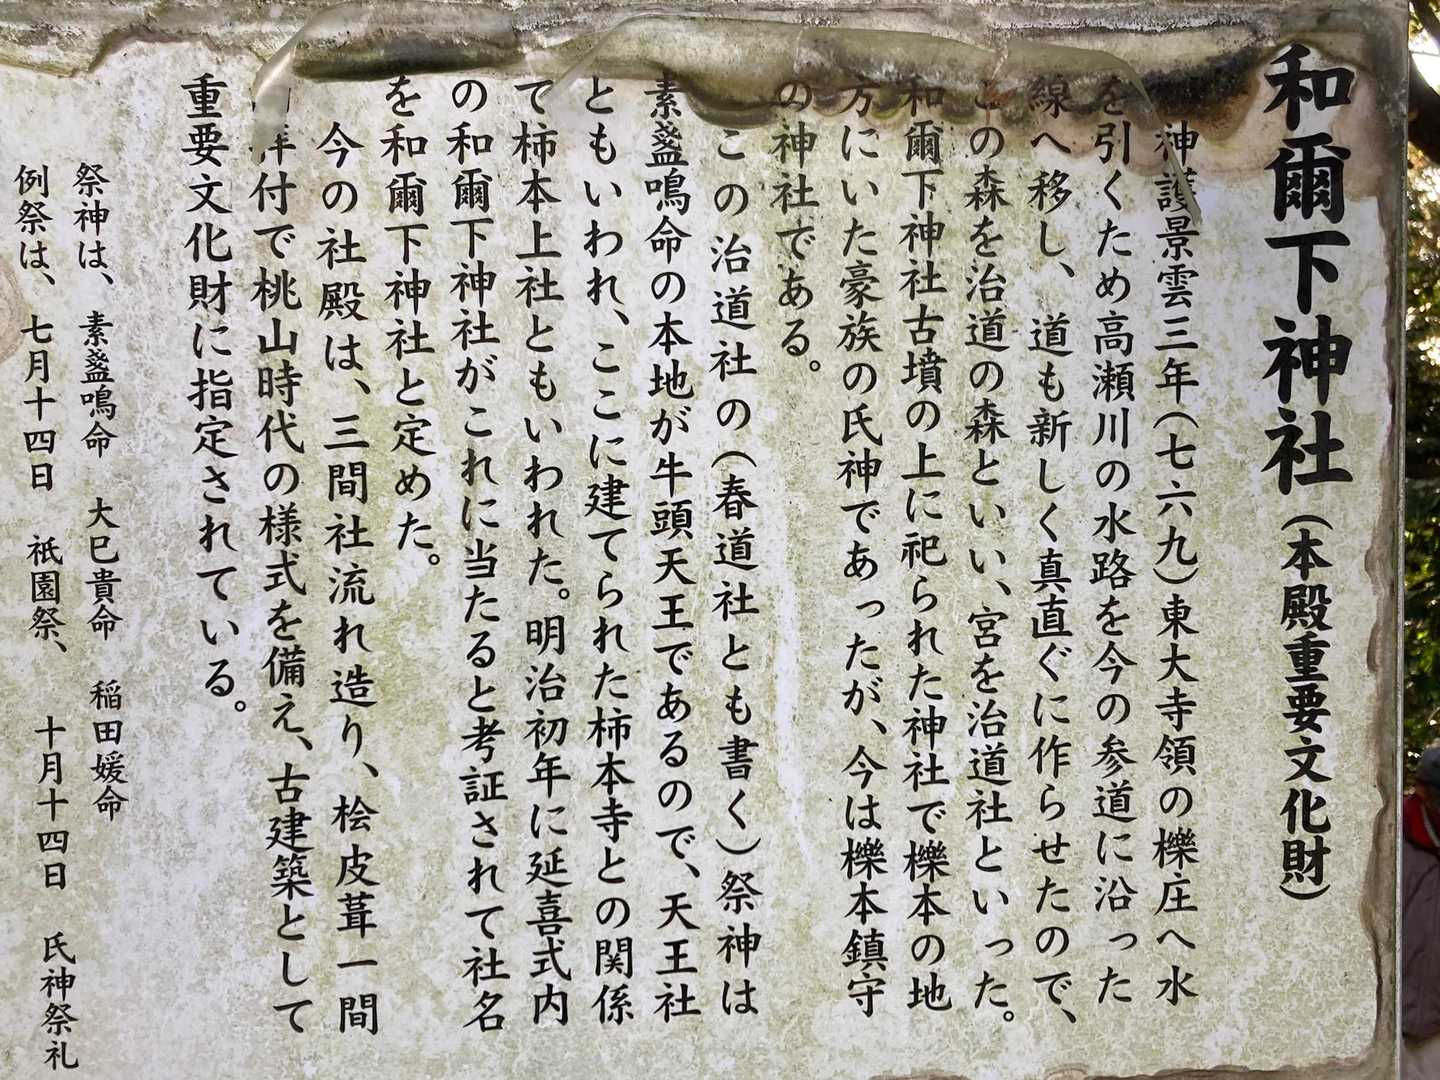 和爾下神社（本殿重要文化財）
神護景雲三年（七六九）東大寺領の櫟庄へ水
を引くため高瀬川の水路を今の参道に沿った
線へ移し、道も新しく真直ぐに作らせたので、
この森を治道の森といい、宮を治道社といった。
和爾下神社古墳の上に祀られた神社で櫟本の地
方にいた豪族の氏神であったが、今は櫟本鎮守
の神社である。
この治道社の（春道社とも書く）祭神は
素盞鳴命の本地が牛頭天王であるので、天王社
ともいわれ、ここに建てられた柿本寺との関係
で柿本上社ともいわれた。明治初年に延喜式内
の和爾下神社がこれに当たると考証されて社名
を和爾下神社と定めた。
今の社殿は、三間社流れ造り、桧皮葺一間
拝付で桃山時代の様式を備え、古建築として
重要文化財に指定されている。
祭神は、素盞鳴命 大巳貴命 稲田媛命
例祭は、七月十四日 祇園祭、 十月十四日 氏神祭礼